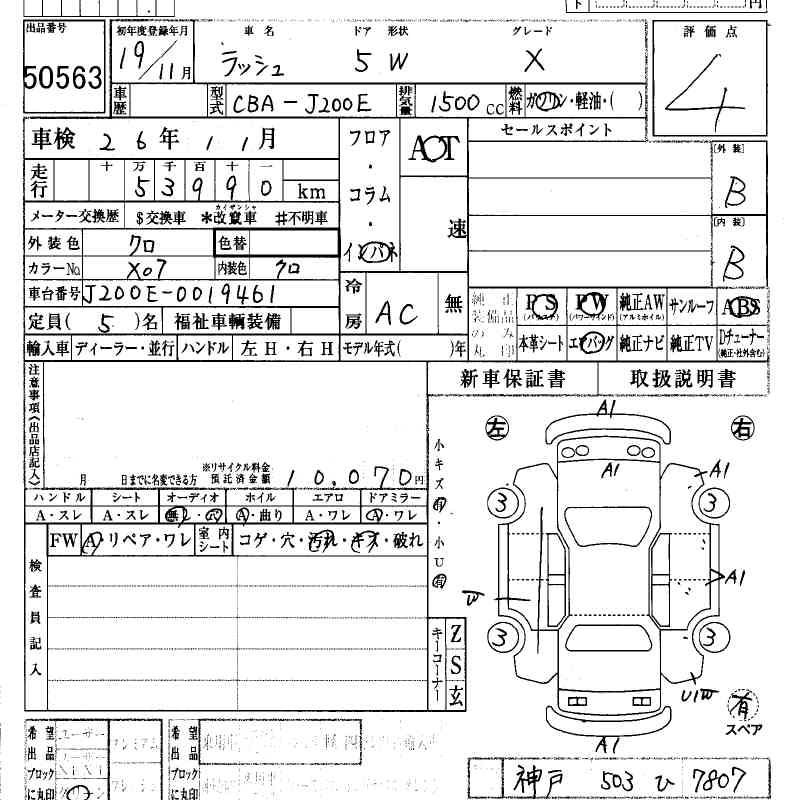 円
出品番号 初年度登録年月 車名 ドア 形状 グレード 評価点
50563 19/11月 ラッシュ 5 W X 4
車歴 型式 CBA-J200E 排気量 1500cc 燃料 ガソリン・軽油・( )
車検 26年11月 フロア・コラム・インパネ AOT セールスポイント
走行 十万千百十一
53990 km 速
[外装] B
メーター交換歴 $交換車 *改竄車 #不明車
カイザンシャ
外装色 クロ 色替
[内装] B
カラーNo. X07 内装色 クロ
車台番号 J200E-0019461 冷房 AC 無
純正装備品のみ丸印 PS (パワステ) PW (パワーウインド) 純正AW (アルミホイル) サンルーフ ABS
定員( 5 )名 福祉車輌装備
本革シート エアバッグ 純正ナビ 純正TV Dチューナー (純正・社外含む)
輸入車 ディーラー・並行 ハンドル 左H・右H モデル年式( )年
注意事項(出品店記入) 新車保証書 取扱説明書
月 日までに名変できる方 ※リサイクル料金預託済金額 10,070円
ハンドル シート オーディオ ホイル エアロ ドアミラー
A・スレ A・スレ 無・穴 A・曲り A・ワレ A・ワレ
FW A・リペア・ワレ 室内シート コゲ・穴・汚れ・キズ・破れ
検査員記入
小キズ有・小U有
キーコーナー Z S 玄
左 A1 右
A1 A1
3 3
A1
W
3 3
U1W
A1
有
スペア
希望出品ブロックに丸印 ユーザー プレミアム
希望出品ブロックに丸印
神戸 503 ひ 7807